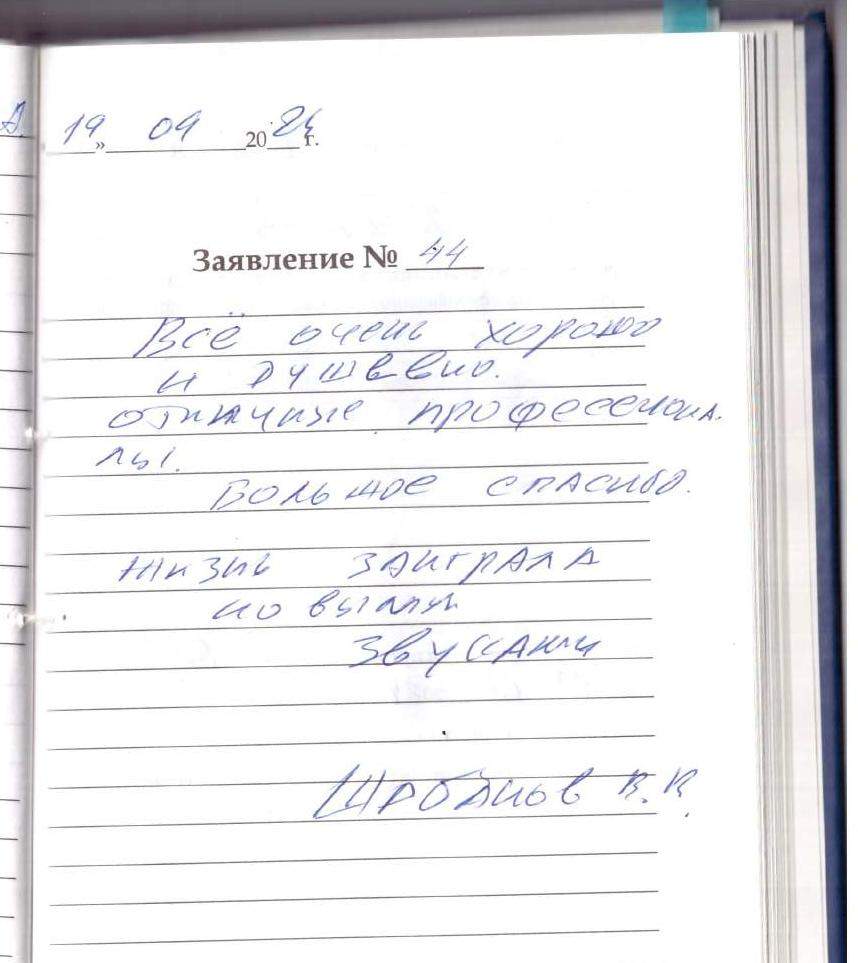 19» 09 2024 г.
Заявление № 44
Всё очень хорошо
и душевно.
отличные професеиона
лы.
Большое спасибо.
Жизнь заиграла
новыми
звуками
Шабанов В.В.